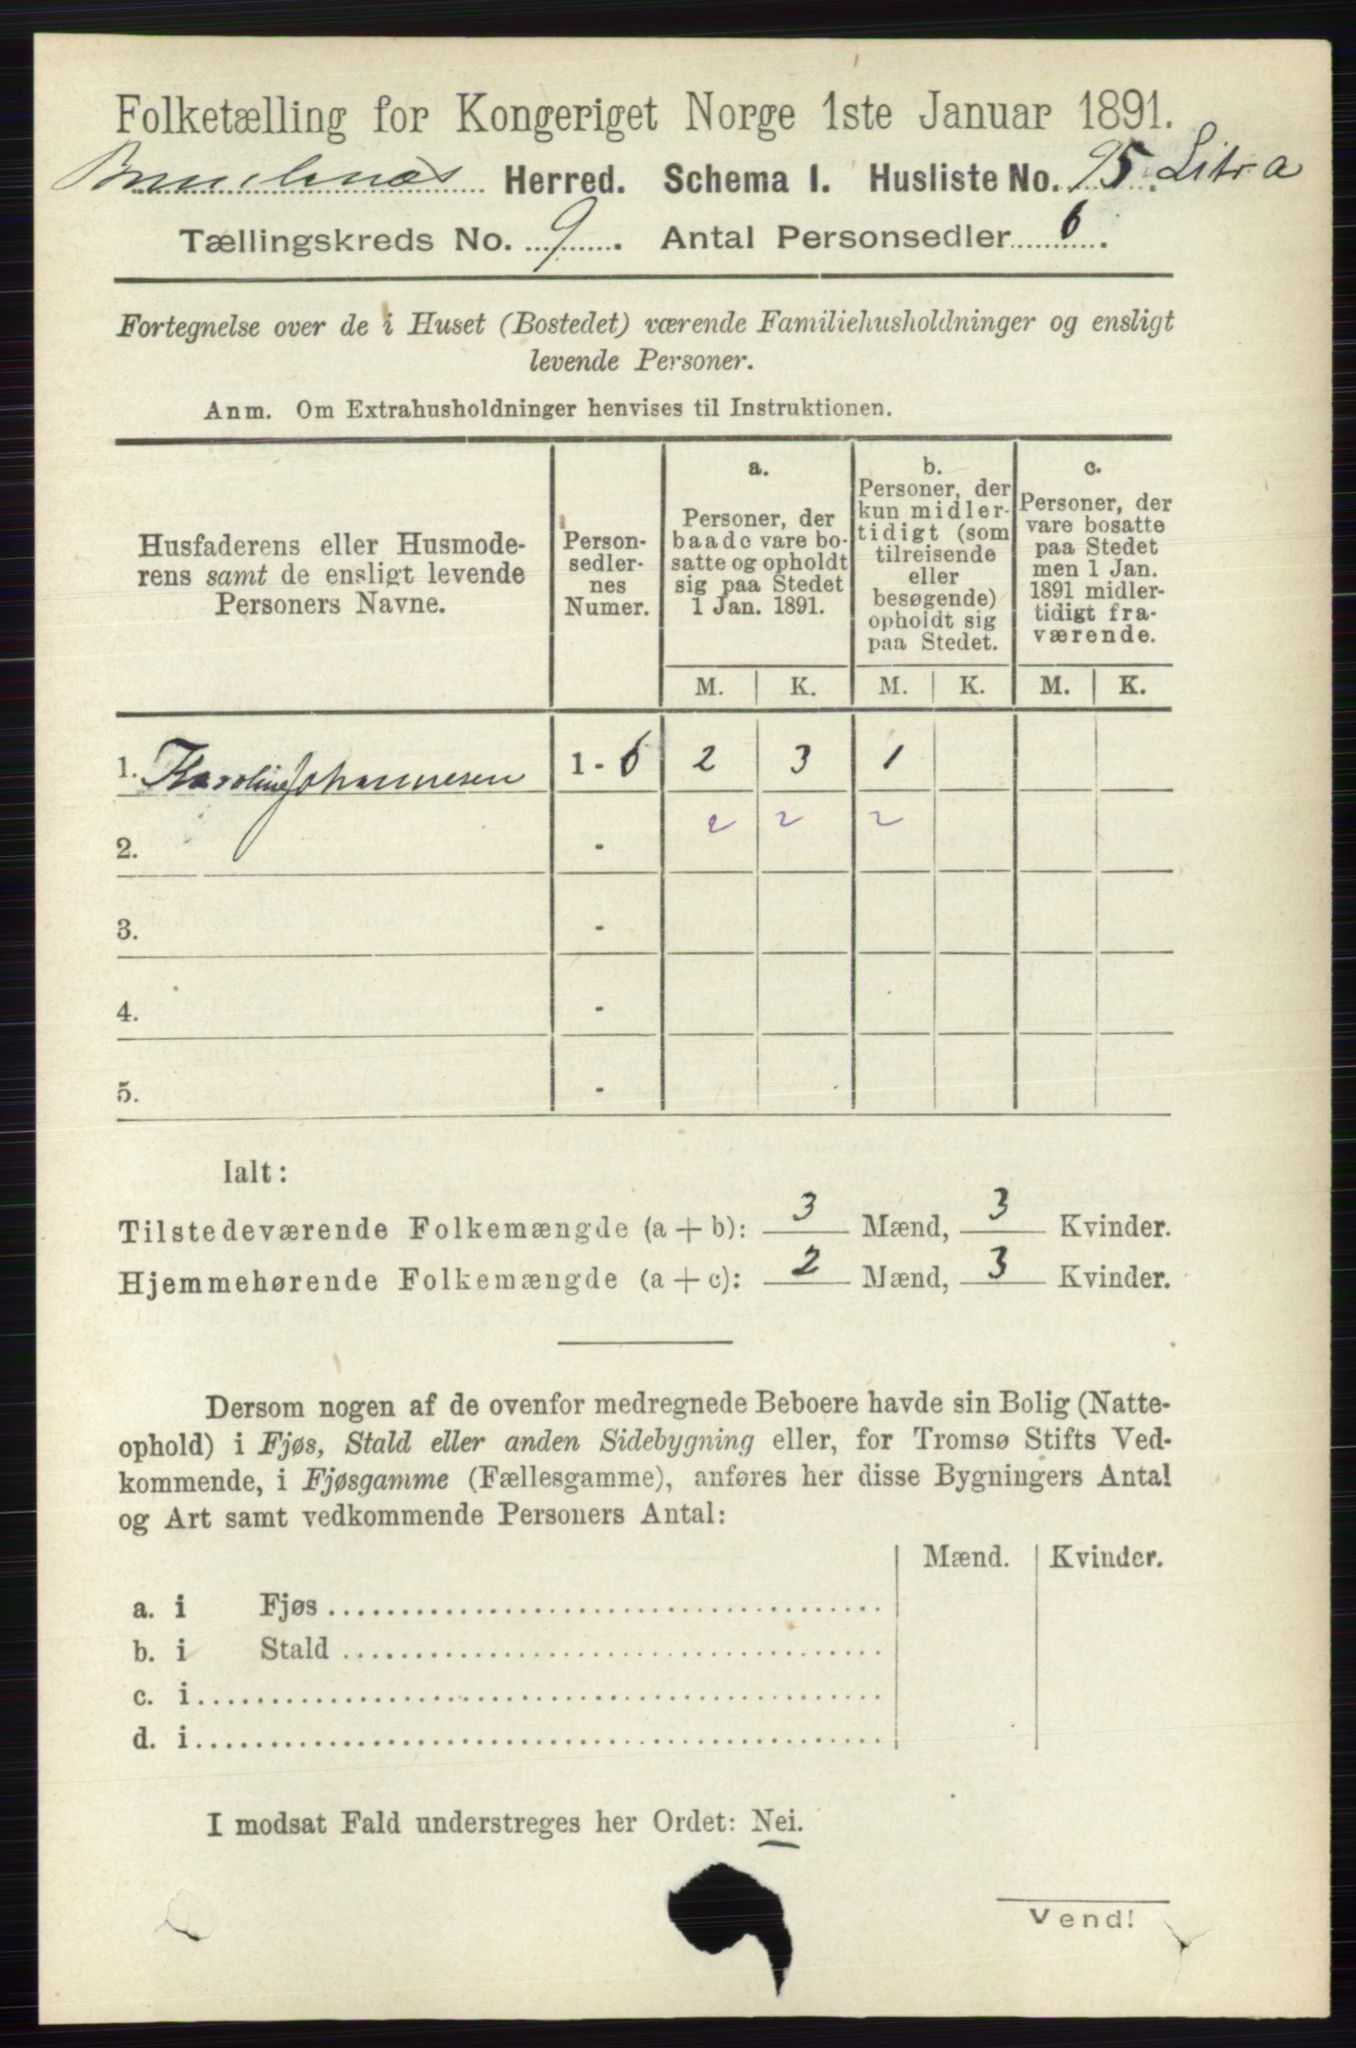 Folketælling for Kongeriget Norge 1ste Januar 1891.
Brunlanæs Herred. Schema I. Husliste No. 95 Litr a
Tællingskreds No. 9. Antal Personsedler 6.
Fortegnelse over de i Huset (Bostedet) værende Familiehusholdninger og ensligt
levende Personer.
Anm. Om Extrahusholdninger henvises til Instruktionen.
Husfaderens eller Husmode-
rens samt de ensligt levende
Personers Navne.
Person-
sedler-
nes
Numer.
a.
Personer, der
baade vare bo-
satte og opholdt
sig paa Stedet
1 Jan. 1891.
b.
Personer, der
kun midler-
tidigt (som
tilreisende
eller
besøgende)
opholdt sig
paa Stedet.
c.
Personer, der
vare bosatte
paa Stedet
men 1 Jan.
1891 midler-
tidigt fra-
værende.
M. K. M. K. M. K.
1. Karoline Johannesen 1 - 6 2 3 1
2. - 2 2 2
3. -
4. -
5. -
Ialt:
Tilstedeværende Folkemængde (a + b): 3 Mænd, 3 Kvinder.
Hjemmehørende Folkemængde (a + c): 2 Mænd, 3 Kvinder.
Dersom nogen af de ovenfor medregnede Beboere havde sin Bolig (Natte-
ophold) i Fjøs, Stald eller anden Sidebygning eller, for Tromsø Stifts Ved-
kommende, i Fjøsgamme (Fællesgamme), anføres her disse Bygningers Antal
og Art samt vedkommende Personers Antal:
Mænd. Kvinder.
a. i Fjøs
b. i Stald
c. i
d. i
I modsat Fald understreges her Ordet: Nei.
Vend!